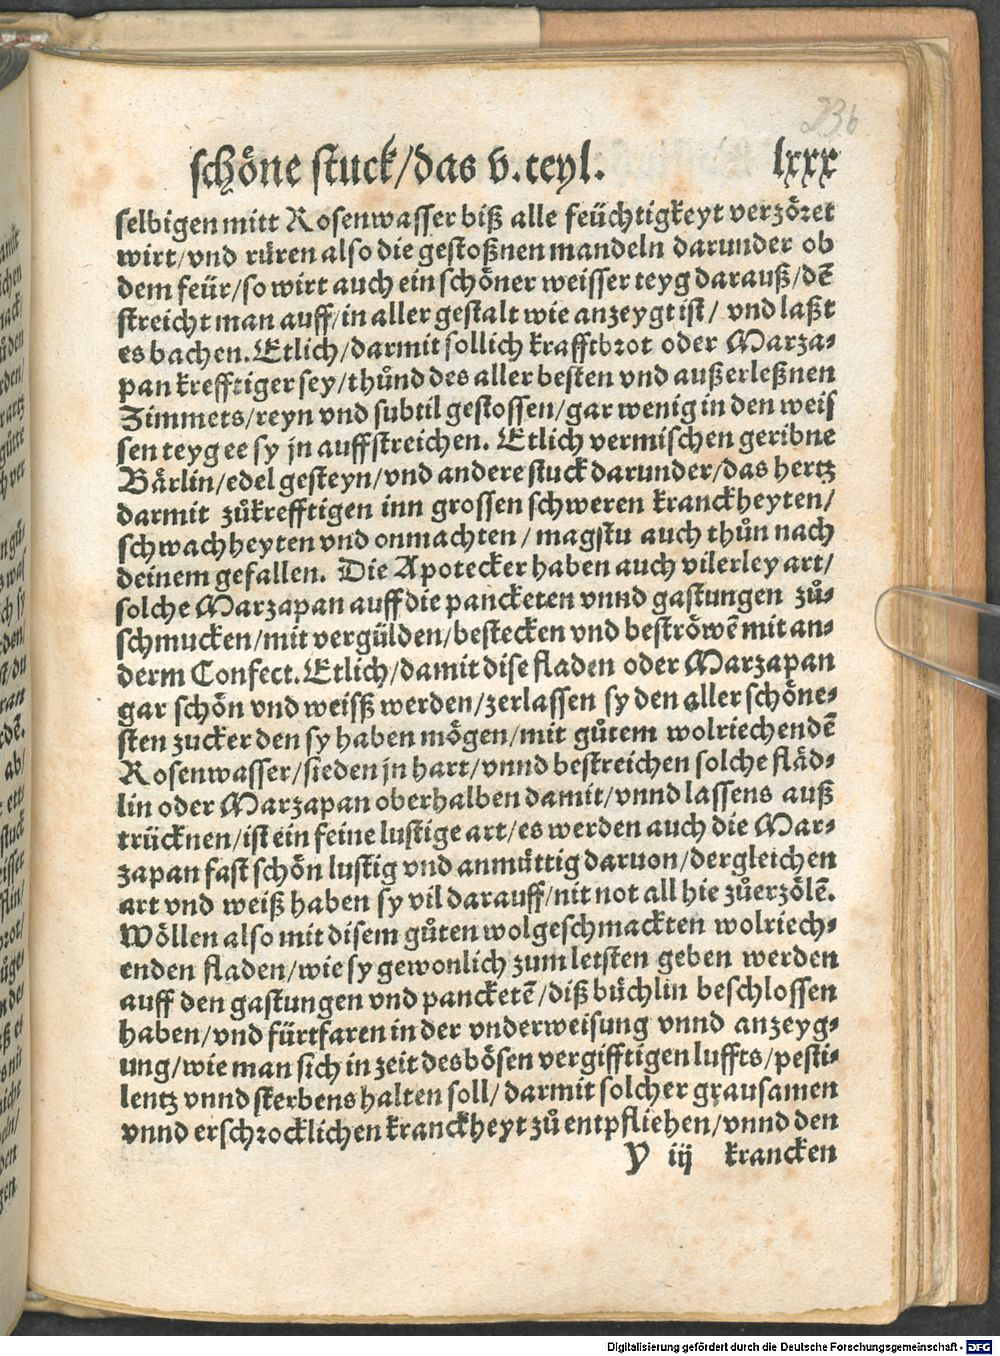 236
schöne stuck/das v.teyl. lxxx
selbigen mitt Rosenwasser biß alle feüchtigkeyt verzöret
wirt/vnd rüren also die gestoßnen mandeln darunder ob
dem feür/so wirt auch ein schöner weisser teyg darauß/dē
streicht man auff/in aller gestalt wie anzeygt ist/ vnd laßt
es bachen.Etlich/darmit sollich krafftbrot oder Marza⸗
pan krefftiger sey/thůnd des aller besten vnd außerleßnen
Zimmets/reyn vnd subtil gestossen/gar wenig in den weis
sen teyg ee sy jn auffstreichen. Etlich vermischen geribne
Bärlin/edel gesteyn/vnd andere stuck darunder/das hertz
darmit zůkrefftigen inn grossen schweren kranckheyten/
schwachheyten vnd onmachten/ magstu auch thůn nach
deinem gefallen. Die Apotecker haben auch vilerley art/
solche Marzapan auff die pancketen vnnd gastungen zů⸗
schmucken/mit vergülden/bestecken vnd beströwē mit an⸗
derm Confect.Etlich/damit dise fladen oder Marzapan
gar schön vnd weisß werden/zerlassen sy den aller schöne⸗
sten zucker den sy haben mögen/mit gůtem wolriechendē
Rosenwasser/sieden jn hart/vnnd bestreichen solche fläd⸗
lin oder Marzapan oberhalben damit/vnnd lassens auß
trücknen/ist ein feine lustige art/es werden auch die Mar⸗
zapan fast schön lustig vnd anmüttig daruon/dergleichen
art vnd weiß haben sy vil darauff/nit not all hie zůerzölē.
Wöllen also mit disem gůten wolgeschmackten wolriech⸗
enden fladen/wie sy gewonlich zum letsten geben werden
auff den gastungen vnd pancketē/diß büchlin beschlossen
haben/vnd fürtfaren in der vnderweisung vnnd anzeyg⸗
ung/wie man sich in zeit des bösen vergifftigen luffts/pesti⸗
lentz vnnd sterbens halten soll/ darmit solcher grausamen
vnnd erschrocklichen kranckheyt zů entpfliehen/vnnd den
Y iij krancken
Digitalisierung gefördert durch die Deutsche Forschungsgemeinschaft - DFG